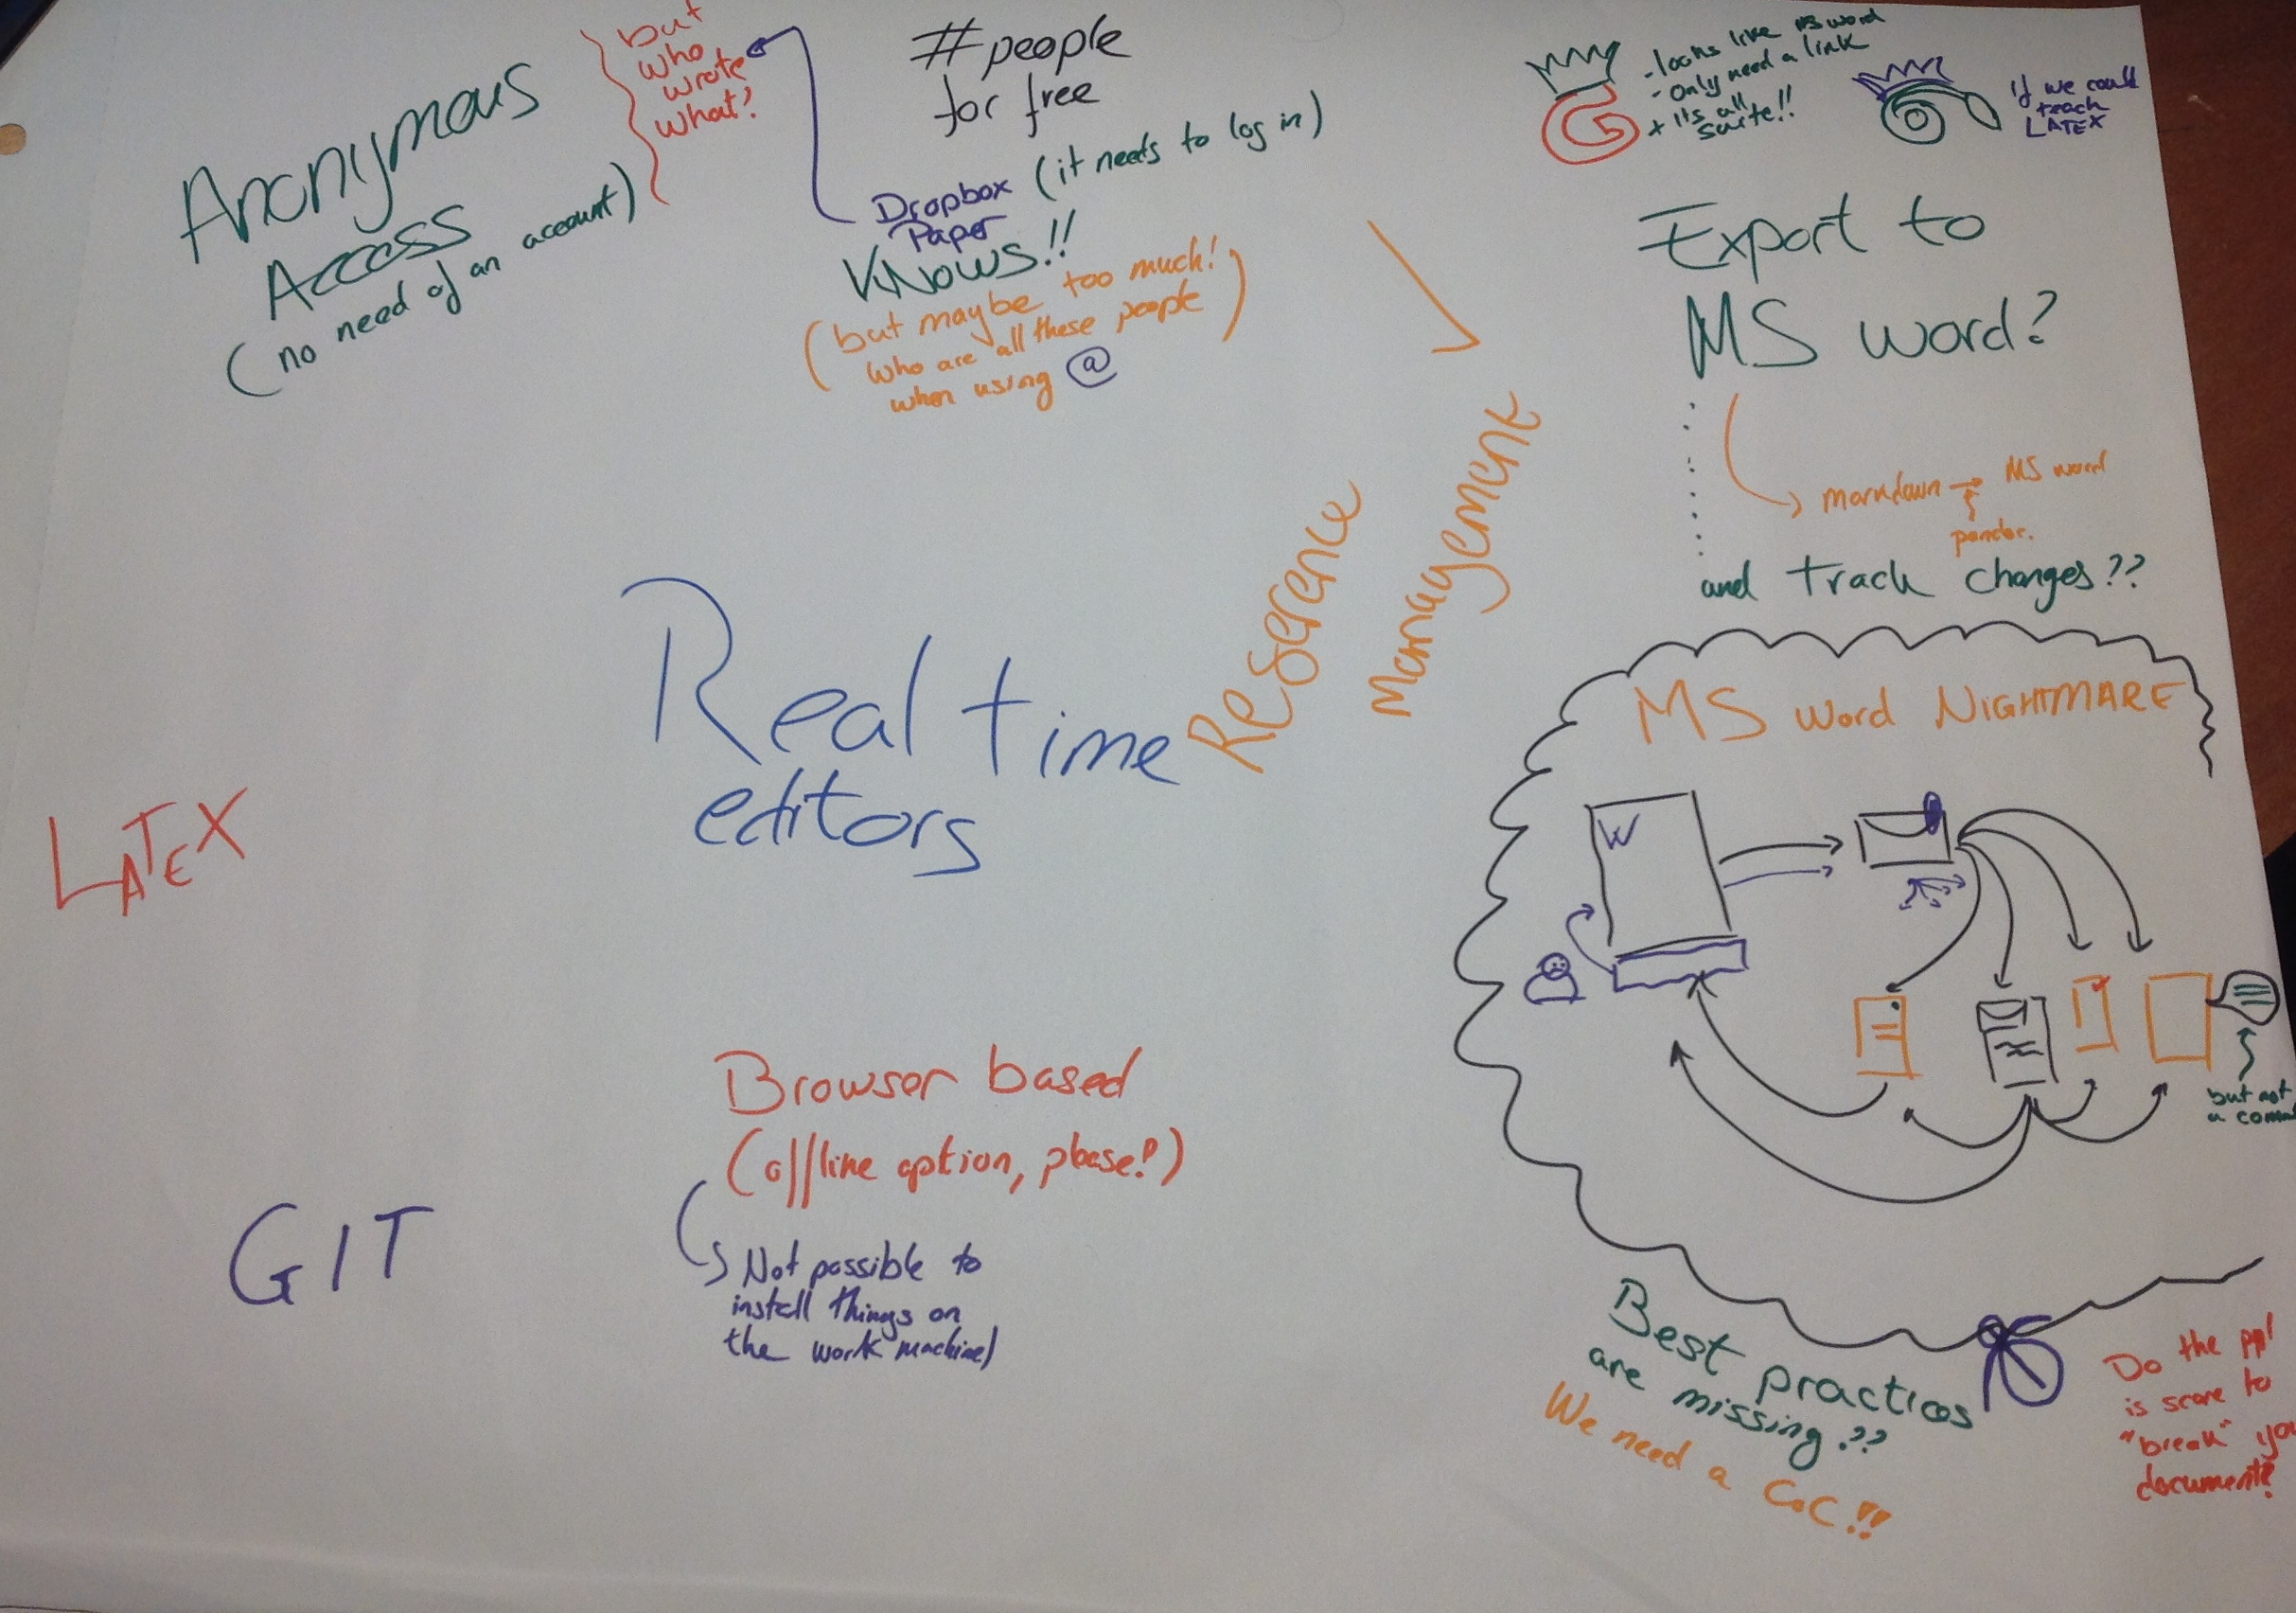 Anonymous
Access
(no need of an account)
but
who
wrote
what?
#people
for free
Dropbox
Paper
(it needs to log in)
KNows!!
(but maybe too much!
who are all these people
when using @)
G
- looks like MS word
- only need a link
+ its all
suite!!
if we could
teach
LATEX
Export to
MS word?
markdown → MS word
pandoc.
and track changes??
Reference
Management
Real time
editors
LATEX
GIT
Browser based
(offline option, please!)
Not possible to
install things on
the work machine)
MS word NIGHTMARE
W
but not
a
Best practices
are missing??
We need a CoC!!
Do the ppl
is scare to
"break"
document?